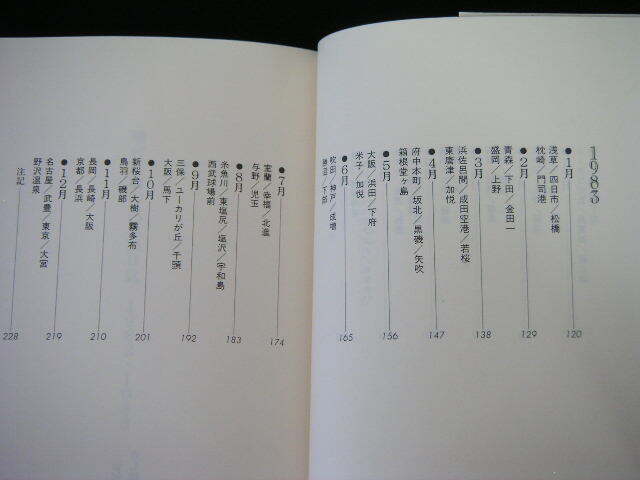 1983
●1月
浅草／四日市／松橋
枕崎／門司港
120
●2月
青森／下田／金田一
盛岡／上野
129
●3月
浜佐呂間／成田空港／若桜
東唐津／加悦
138
●4月
府中本町／坂北／黒磯／矢吹
箱根堂ヶ島
147
●5月
大阪／浜田／下府
米子／加悦
156
●6月
吹田／神戸／成増
165
●7月
室蘭／幸福／北進
与野／児玉
174
●8月
糸魚川／東塩尻／塩沢／宇和島
西武球場前
183
●9月
三保／ユーカリが丘／千頭
大阪／馬下
192
●10月
新桜台／大樹／霧多布
鳥羽／磯部
201
●11月
長岡／長崎／大阪
京都／長浜
210
●12月
名古屋／武豊／東京／大宮
野沢温泉
219
注記
228